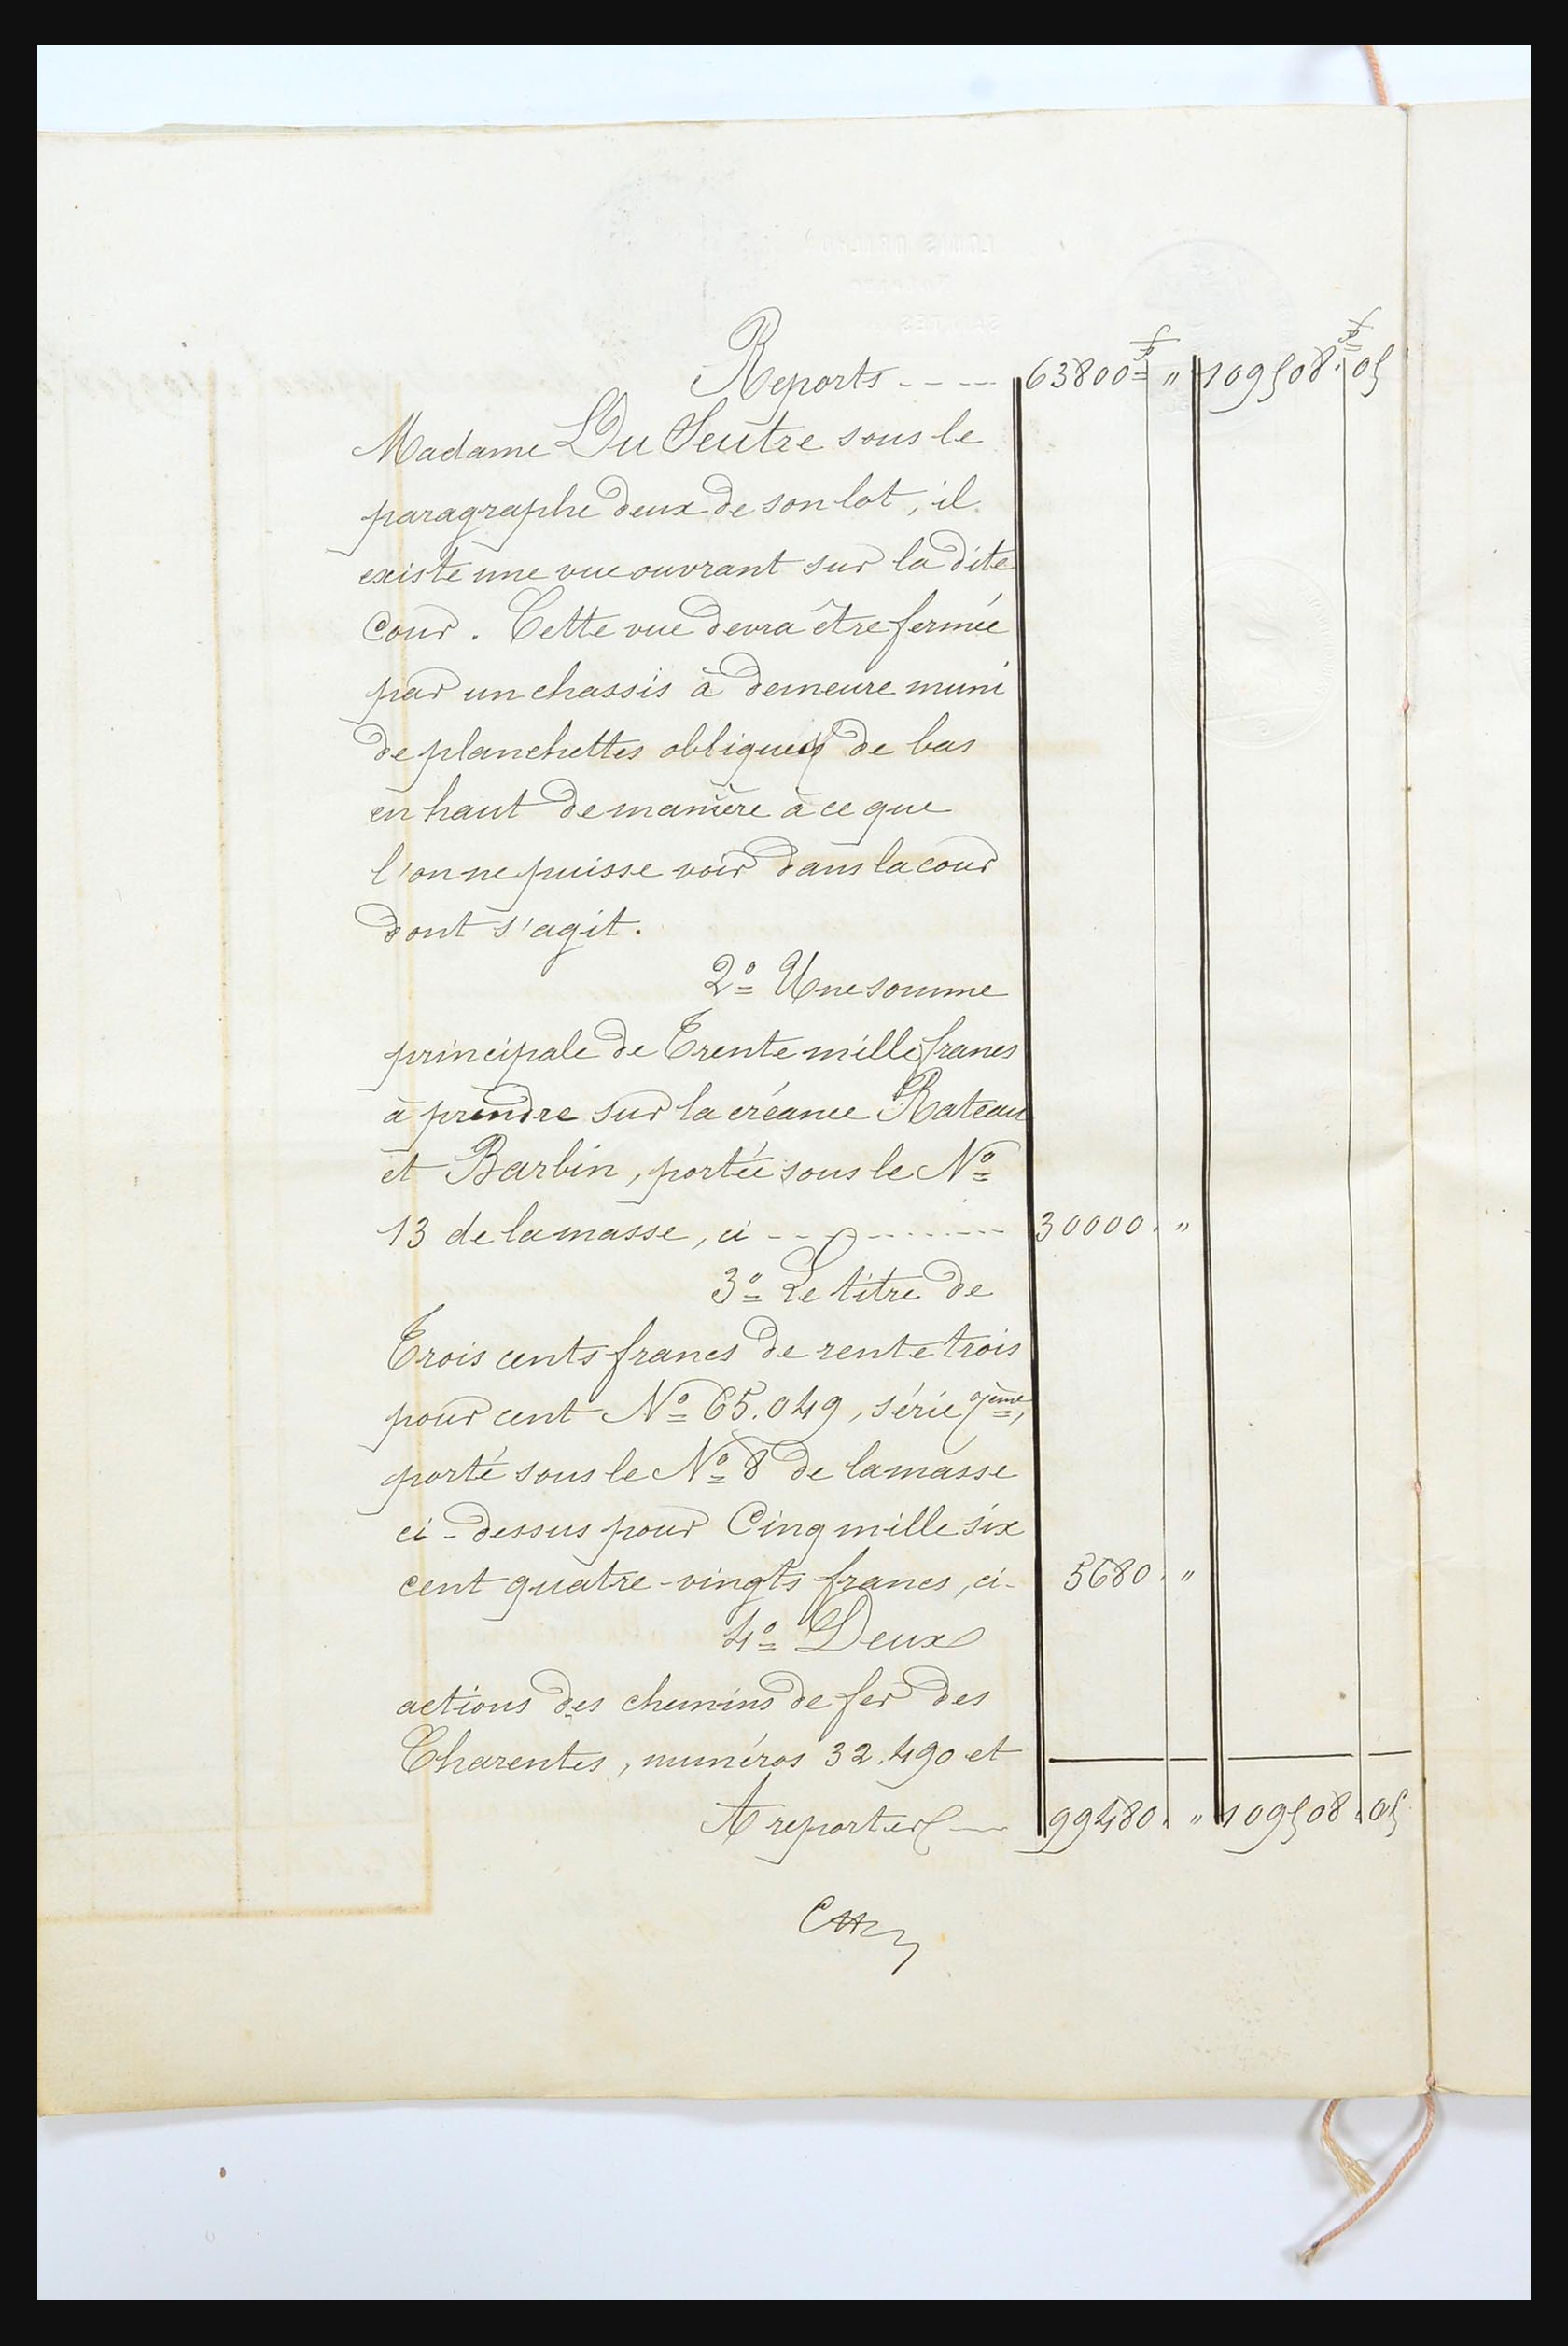 Reports - - - - 63800f= " 109508f. 05
Madame Du Seutre sous le
paragraphe deux de son lot, il
existe une vue ouvrant sur la dite
Cour. Cette vue devra être fermée
par un chassis à demeure muni
de planchettes obliques de bas
en haut de manière à ce que
l'on ne puisse voir dans la cour
dont s'agit.
2º Une somme
principale de Trente mille francs
à prendre sur la créance Rateau
et Barbin, portée sous le Nº
13 de la masse, ci - - - - - - - - 30000. "
3º Le titre de
Trois cents francs de rente trois
pour cent Nº 65.049, série 7ème,
porté sous le Nº 8 de la masse
ci-dessus pour Cinq mille six
cent quatre-vingts francs, ci- 5680. "
4º Deux
actions des chemins de fer des
Charentes, numéros 32.490 et
A reporter — 99480. " 109508.05